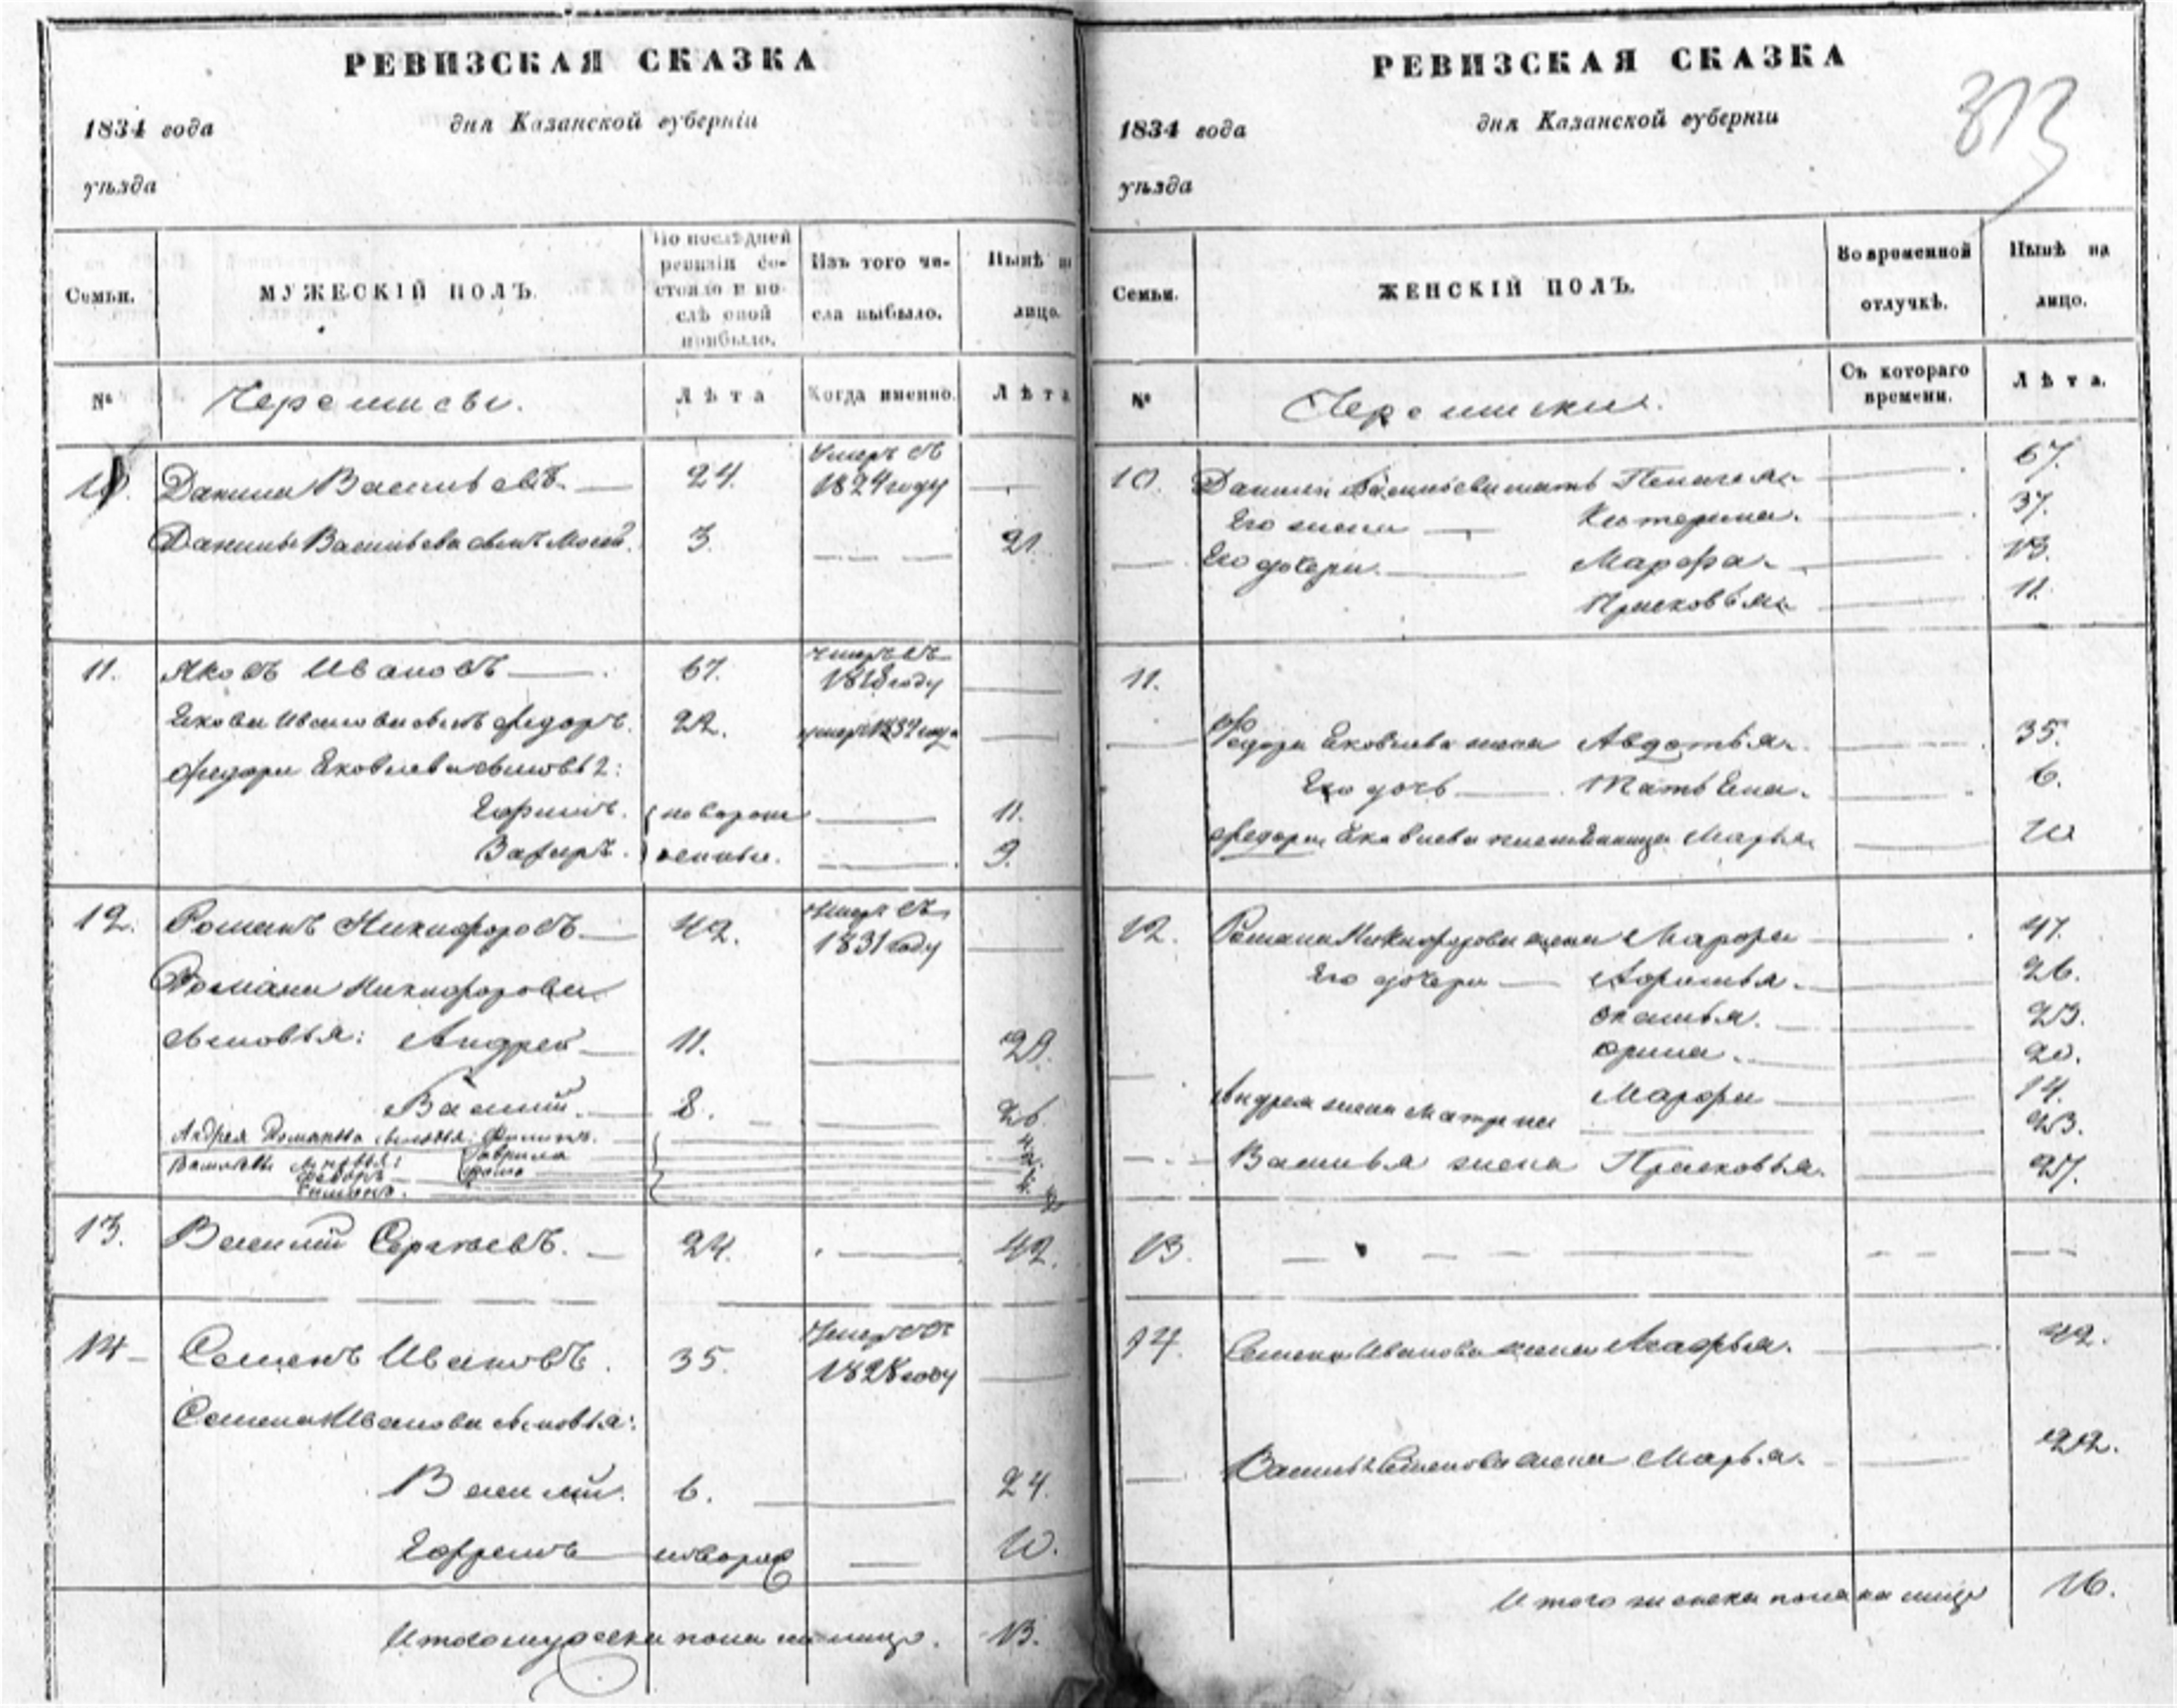 РЕВИЗСКАЯ СКАЗКА
1834 года дня Казанской губерніи
уѣзда
Семьи.
МУЖЕСКІЙ ПОЛЪ.
По послѣдней ревизіи состояло и послѣ оной прибыло.
Изъ того числа выбыло.
Нынѣ на лицо.
№
Черемисы.
Лѣта
Когда именно.
Лѣта
10. Данила Васильевъ 24. умеръ въ 1824 году
Данилы Васильева сынъ 3. 21.
11. Яковъ Ивановъ 67. умеръ въ году
Екова Иванова сынъ Федоръ. 22. умеръ
Федора Яковлева сыновья:
Ефимъ. новорож 11.
9.
12. Романъ Никифоровъ 42. умеръ въ 1831 году
Романа Никифорова
сыновья: Андрей 11. 29.
Василій. 8. 26.
Андрея Романова сыновья: Филипъ.
Гаврила
сыновья:
Федоръ
13. Василій Сергѣевъ. 24. 42.
14 Семенъ Ивановъ. 35. умеръ въ 1828 году
Семена Иванова сыновья:
Василій. 6. 24.
Ефремъ новорож 10.
Итого мужеска пола на лицо. 13.
РЕВИЗСКАЯ СКАЗКА
313
1834 года дня Казанской губерніи
уѣзда
Семьи.
ЖЕНСКІЙ ПОЛЪ.
Во временной отлучкѣ.
Нынѣ на лицо.
№
Черемиски.
Съ котораго времени.
Лѣта.
10. Данилы Васильева мать Пелагея 67.
Его жена Катерина. 37.
Его дочери. Марфа 13.
Прасковья 11.
11.
Федора Яковлева жена Авдотья. 35.
Его дочь Татьяна. 6.
Федора Яковлева Марья 10
12. Романа Никифорова жена Марфа 47.
Его дочери 26.
23.
Орина. 20.
Марфа 14.
Андрея жена Матрена 23.
Василья жена Прасковья. 27.
13.
14. Семена Иванова жена Агафья. 42.
Василья Семенова жена Марья. 22.
Итого женска пола на лицо 16.